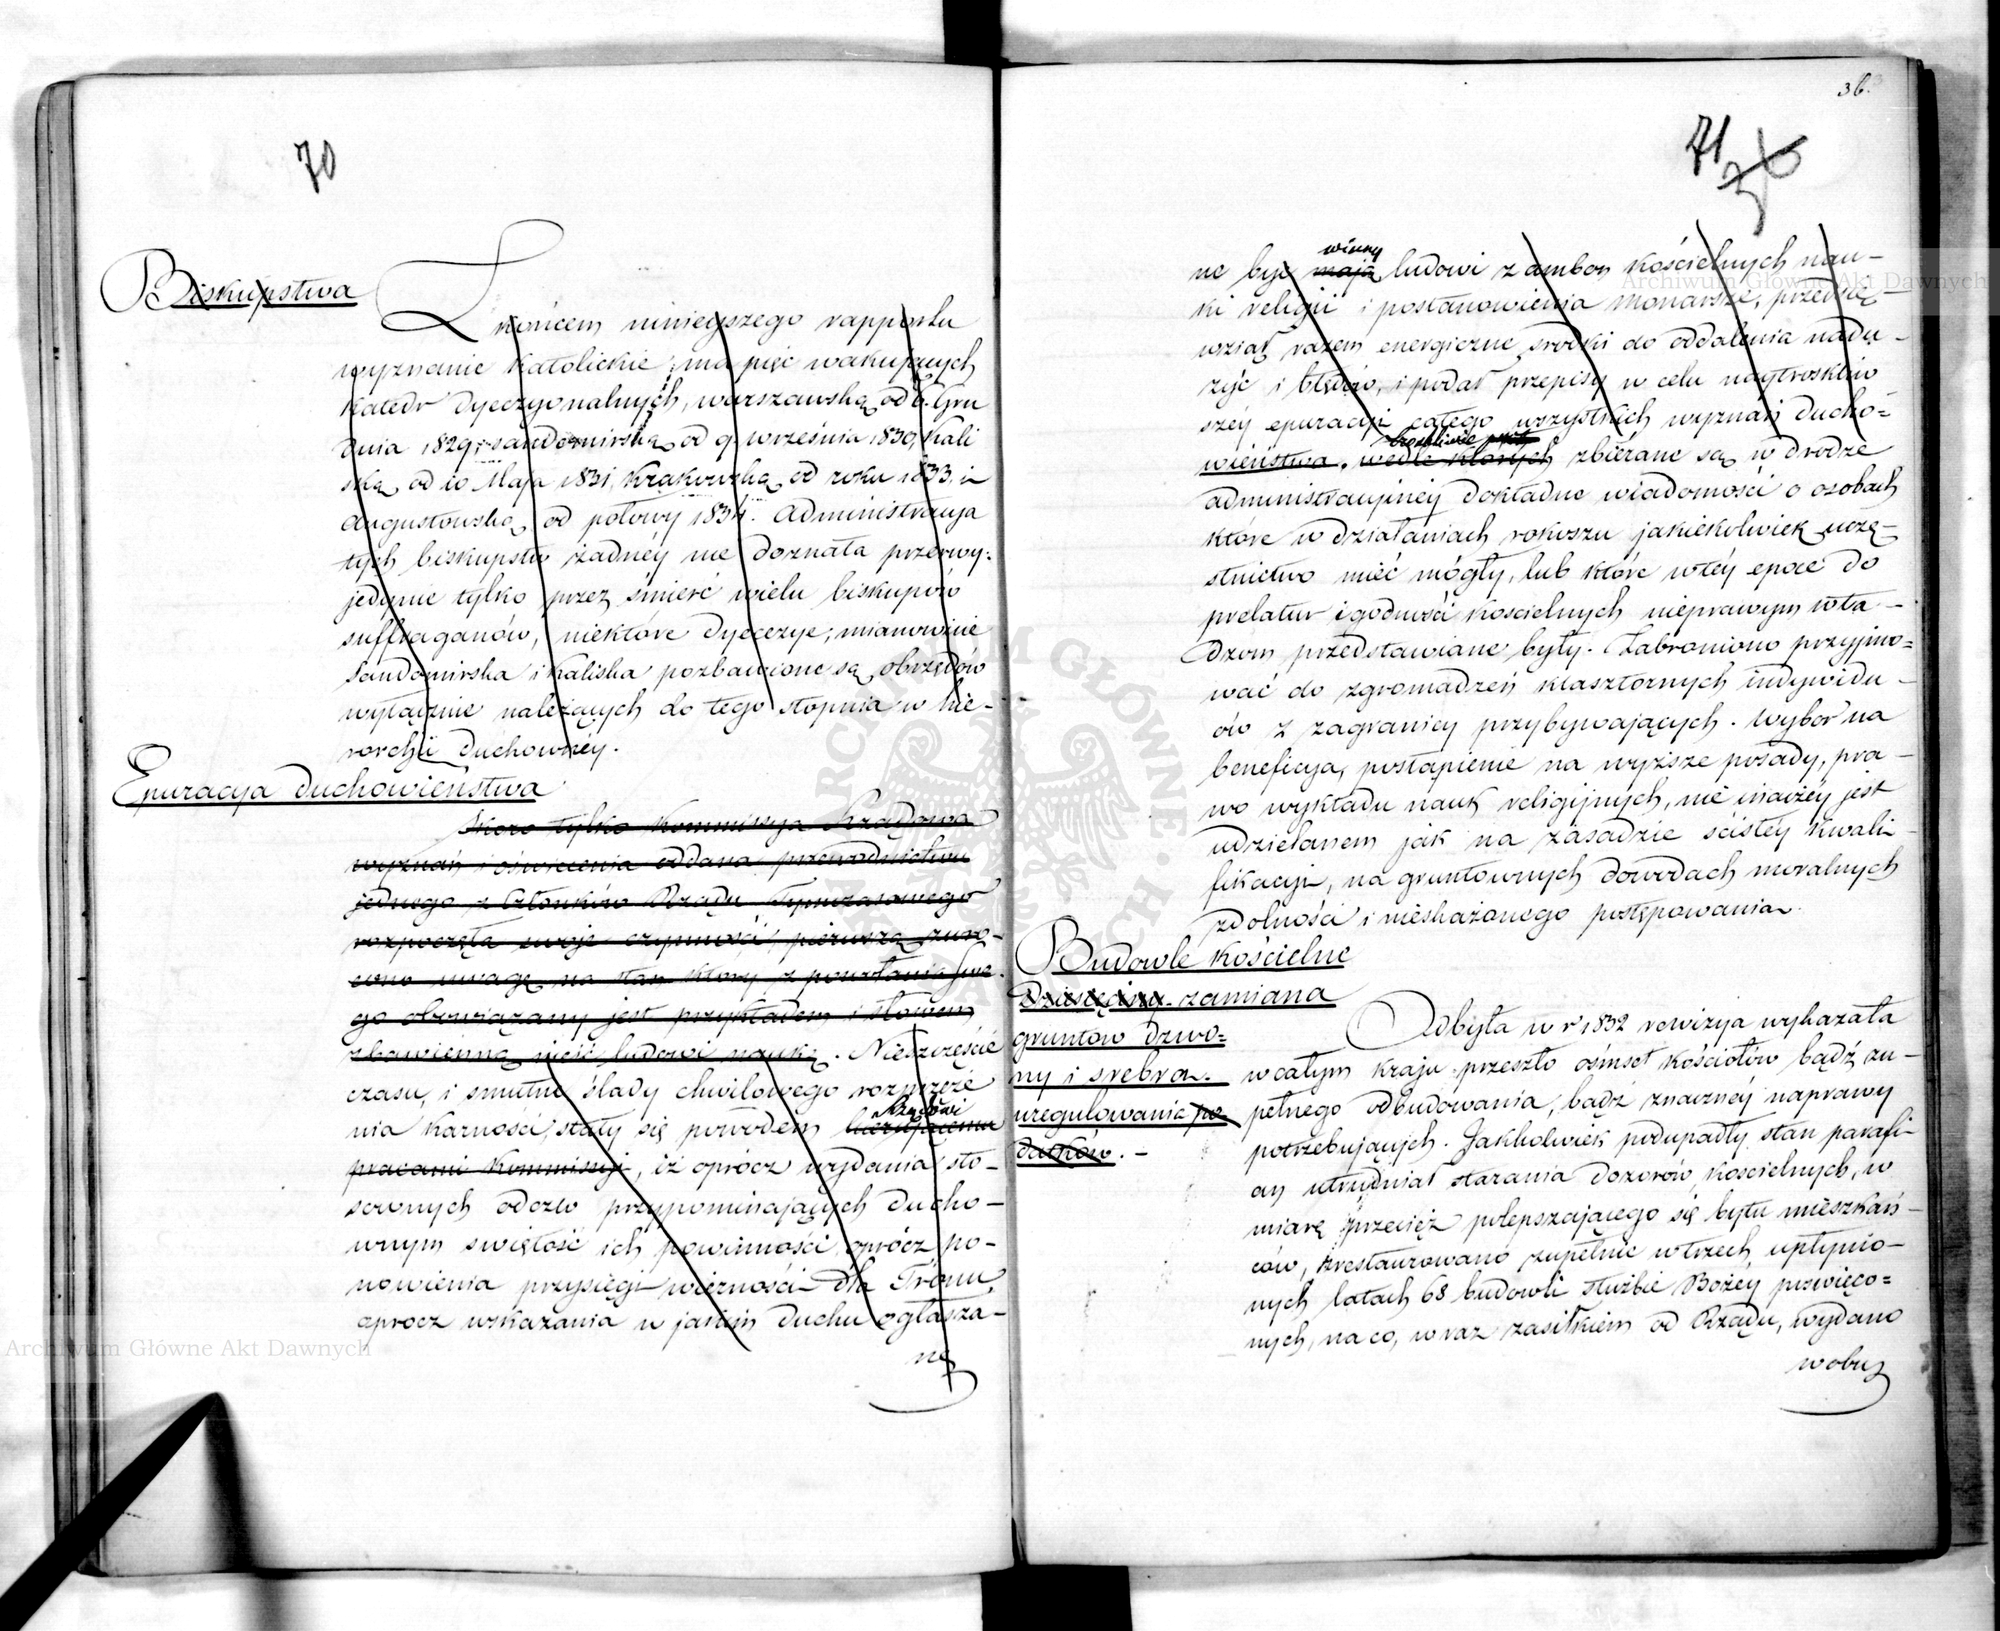 70
Biskupstwa
Z końcem niniejszego rapportu
wyznanie katolickie, ma pięć wakujących
katedr dyecezyonalnych, warszawską od 6. Gru
dnia 1829, sandomirską od 9 września 1830, kali
ską od 10 Maja 1831, krakowską od roku 1833, i
augustowską od połowy 1834. Administracya
tych biskupstw żadnéy nie doznała przerwy;
jedynie tylko przez śmierć wielu biskupów
suffraganów, niektóre dyecezye; mianowicie
Sandomirska i Kaliska pozbawione są obrzędów
wyłącznie należących do tego stopnia w hie-
rarchii duchownéy.
Epuracya duchowieństwa
Skoro tylko Kommissya Rządowa
wyznań i oświecenia oddana przewodnictwu
jednego z Członków Rządu Tymczasowego
rozpoczęła swoje czynności, pierwszą zwró-
cono uwagę na stan który z powołania swe-
go obowiązany jest przykładem i słowem
zbawienną nieść ludowi naukę. Nieszczęście
czasu, i smutne ślady chwilowego rozprzęże
nia karności, stały się powodem
Rządowi
kierującemu
pracami Kommissyi, iż oprócz wydania sto-
sownych odezw przypominających ducho-
wnym świętość ich powinności, oprócz po-
nowienia przysięgi wierności dla Tronu,
oprócz wskazania w jakim duchu ogłasza-
ne
36.
71
36
winny
ne być mają ludowi z ambon kościelnych nau-
ki religii i postanowienia monarsze, przedsię-
wziął razem energiczne środki do oddalenia nadu-
żyć i błędów, i podał przepisy w celu naytroskliw
széy epuracyi całego wszystkich wyznań ducho=
troskliwie przy
wieństwa, wedle których zbiérane są w drodze
administracyjnéy dokładne wiadomości o osobach
które w działaniach rokoszu jakiekolwiek ucze-
stnictwo mieć mógły, lub które w téy epoce do
prelatur i godności kościelnych nieprawym wła-
dzom przedstawiane były. Zabroniono przyjmo=
wać do zgromadzeń klasztornych indywidu-
ów z zagranicy przybywających. Wybór na
beneficya, postąpienie na wyższe posady, pra-
wo wykładu nauk religijnych, nie inaczéy jest
udzielanem jak na zasadzie ścisłéy kwali-
fikacyi, na gruntownych dowodach moralnych
zdolności i nieskażonego postępowania.
Budowle kościelne
Dziesięciny. zamiana
gruntów dzwo=
ny i srebra.
uregulowanie po
datków. -
Odbyta w r. 1832 rewizya wykazała
w całym kraju przeszło ośmset kościołów bądź zu-
pełnego odbudowania, bądź znacznéy naprawy
potrzebujących. Jakkolwiek podupadły stan parafi-
an utrudniał starania dozorów kościelnych, w
miarę przecież polepszającego się bytu mieszkań-
ców, zrestaurowano zupełnie w trzech upłynio-
nych latach 68 budowli służbie Bożéy poświęco=
nych, na co, wraz zasiłkiem od Rządu, wydano
w obu
Archiwum Główne Akt Dawnych
Archiwum Główne Akt Dawnych